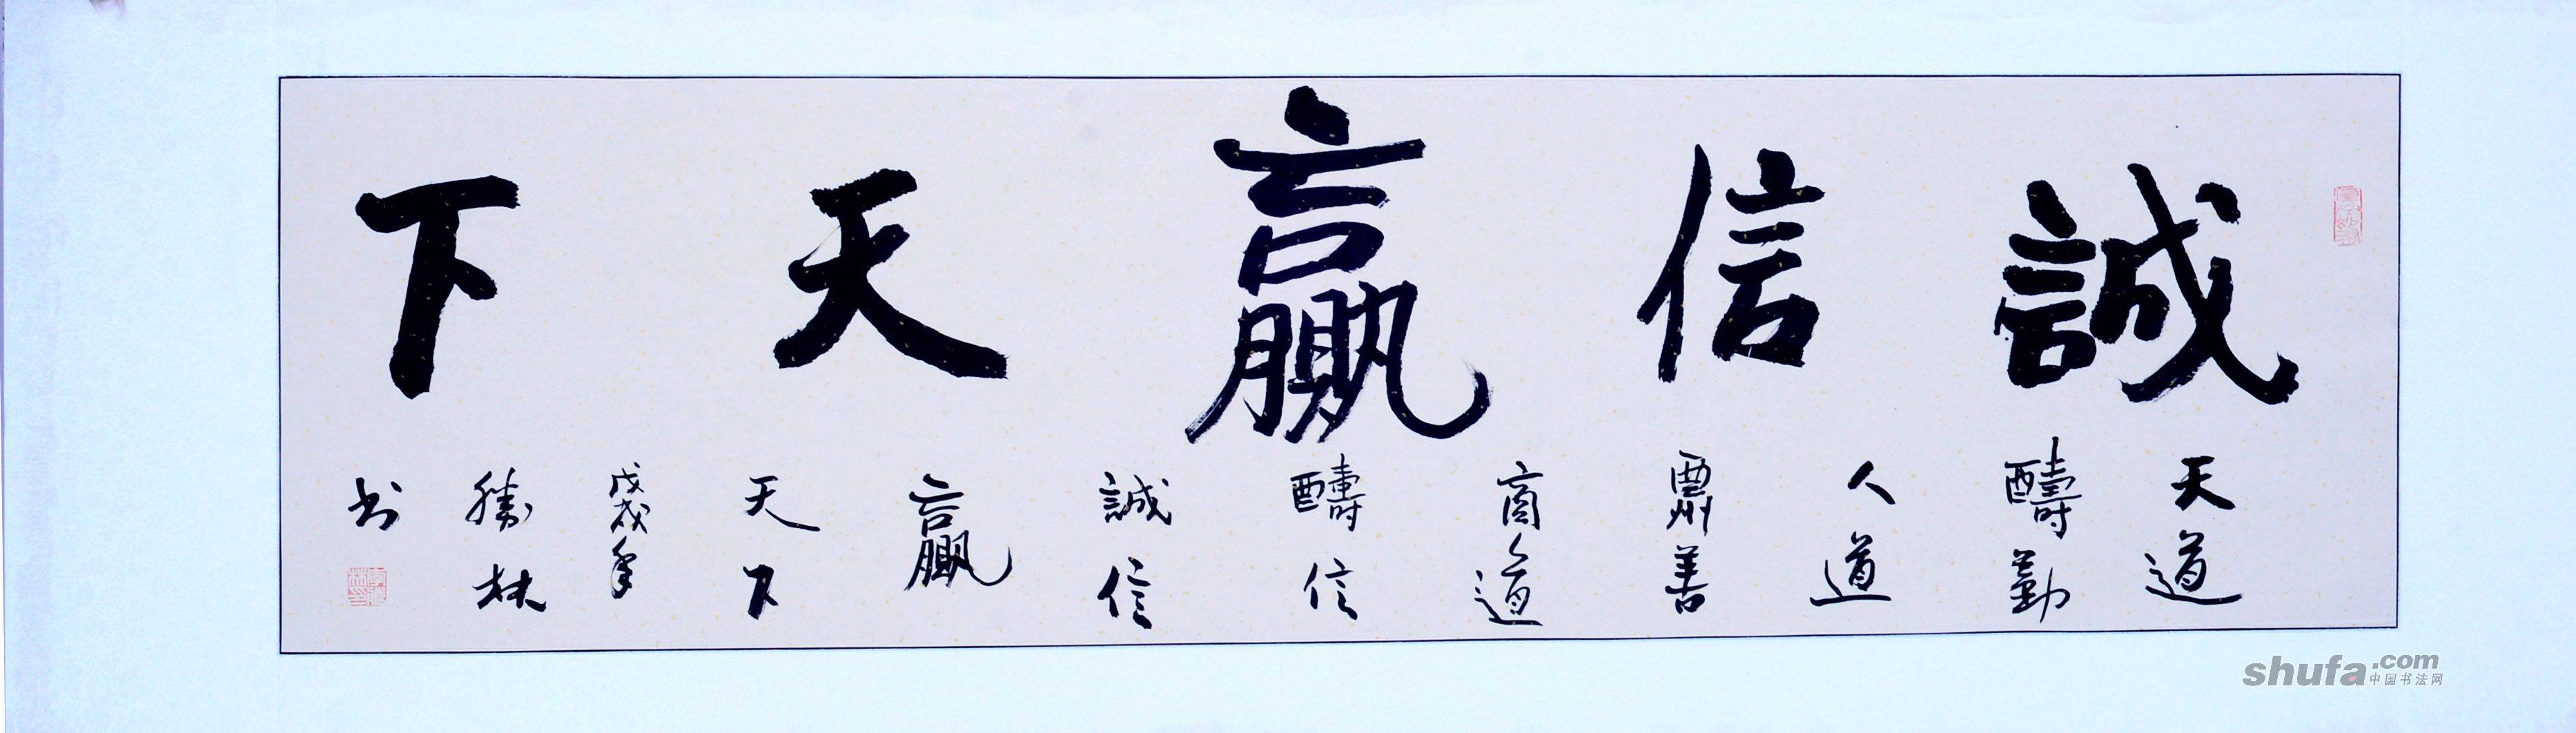 誠信贏天下
天道
醻勤
人道
酬善
商道
醻信
誠信
贏
天下
戊戌年
勝林
书
shufa.com
中国书法网